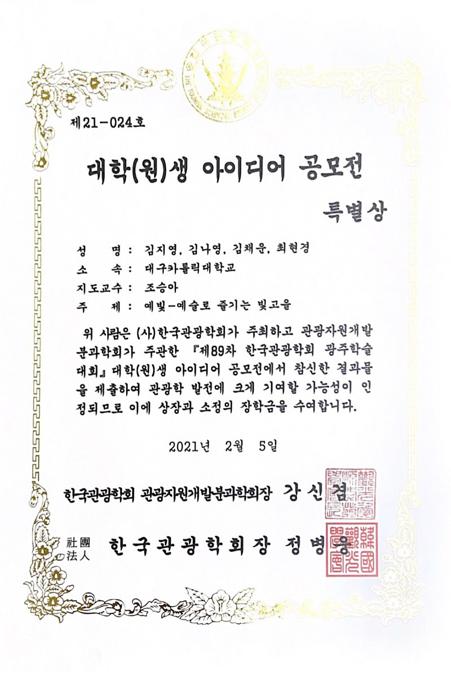 제21-024호
대학(원)생 아이디어 공모전
특별상
성 명 : 김지영, 김나영, 김채운, 최현경
소 속 : 대구카톨릭대학교
지도교수 : 조승아
주 제 : 예빛-예술로 즐기는 빛고을
위 사람은 (사)한국관광학회가 주최하고 관광자원개발
분과학회가 주관한 『제89차 한국관광학회 광주학술
대회』대학(원)생 아이디어 공모전에서 참신한 결과물
을 제출하여 관광학 발전에 크게 기여할 가능성이 인
정되므로 이에 상장과 소정의 장학금을 수여합니다.
2021년 2월 5일
한국관광학회 관광자원개발분과학회장 강신겸
社團
法人
한국관광학회장 정병웅